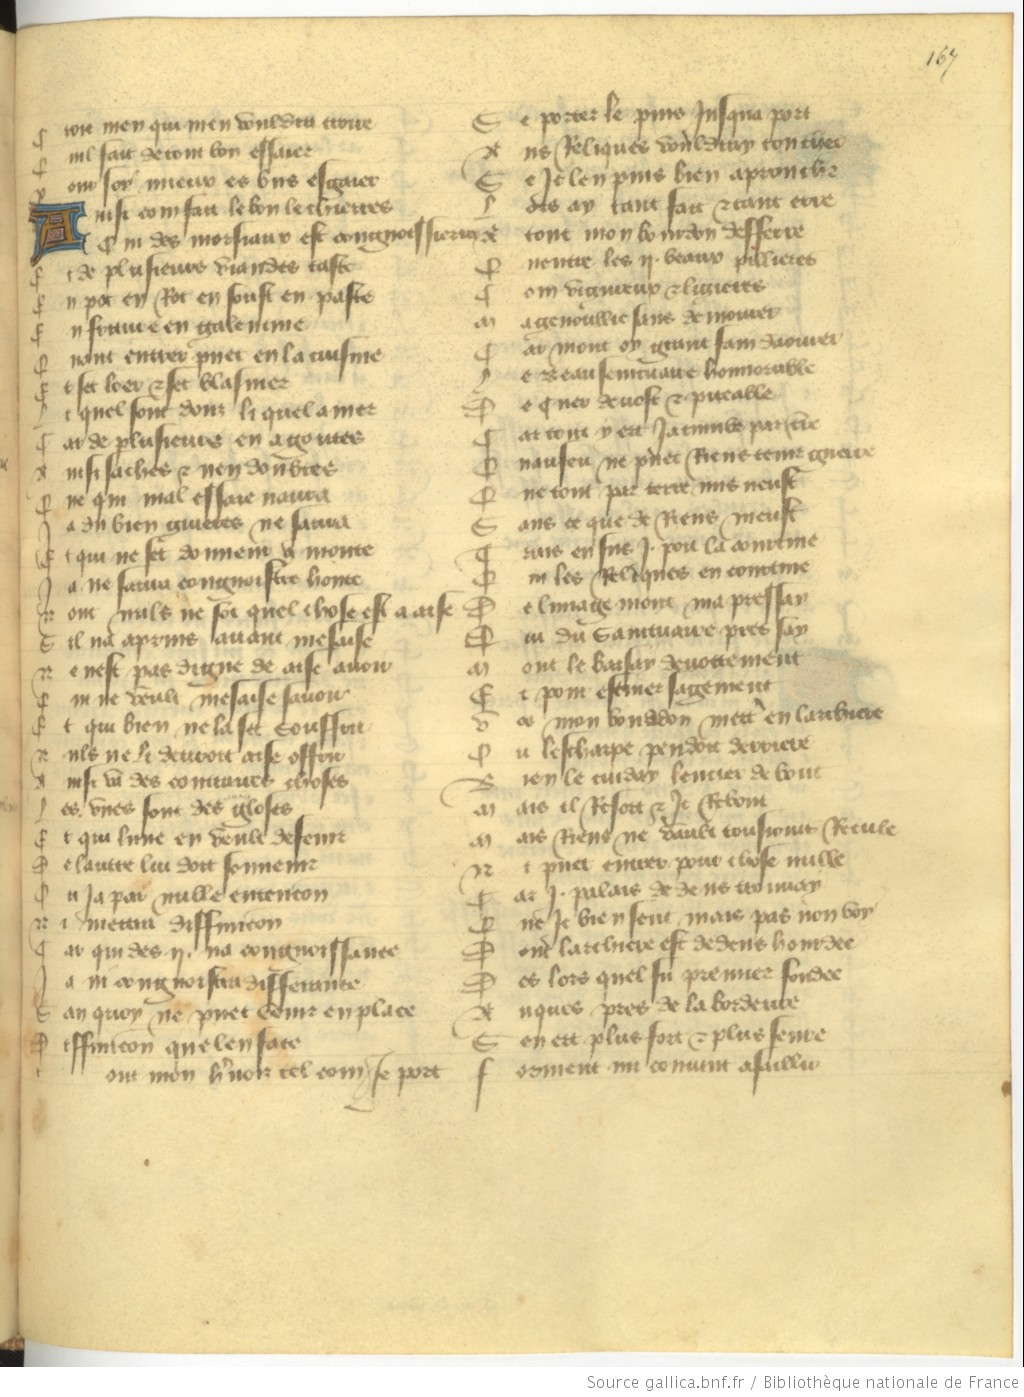 167
C ton men qui men vouldra croire
Quil fait de tout bon essaier
Pour soy mieux es biens esgaier
Ainsi com fait le bon lechierres
Qui des morsiaux est congnoissierres
Et de plusieurs viandes taste
En pot en Rot en soust en paste
En friture en galentine
Quant entrer puet en la cuisine
Et set loer et set blasmer
Et quel sont doux li quel amer
Car de plusieurs en a goutes
Ainsi saches et nen doubtes
Que qui mal essaie naura
Ja du bien gueres ne saura
Et qui ne set donneur a monte
Ja ne saura congnoistre honte
Nont nuls ne scet quel chose est a aise
Sil na apris auant mesaise
Ne nest pas digne de aise auoir
Qui ne veult mesaise sauoir
Et qui bien ne la set souffrir
Nuls ne li deuroit aise offrir
Ainsi va des contraires choses
Les vnes sont des gloses
Et qui lune en veult defenir
De lautre lui doit souuenir
Ou Ja par nulle entencon
Ni mettra diffinicon
Car qui des .ij. na congnoissance
Ja ni congnoistra difference
San quoy ne puet venir en place
Diffinicon que len face
Tout mon h'noiz tel com Je port
Se porter le puis Jusqua port
As Reliques vouldray touchier
Se Je len puis bien aprouchier
Lors ay tant fait et tant erre
A tout mon bourdon defferre
Quentre les .ij. beaux pilliers
Com vigueux et ligiers
Magenoullie sans demourer
Car mont oy grant fain daourer
Le beau seintuaire honnorable
De cuer deuost et piteable
Car tout y ert Ja tumbe par t're
Quau feu ne puet Riens tenir guerre
Que tout par terre mis neust
Sans ce que de Riens meust
Trais en sus .j. pou la courtine
Qui les Reliques en courtine
De limage mont ma pressay
Que du Saintuaire pres say
Mont le baisay deuottement
Et pour estuier sagement
Vos mon bourdon mettre en larchiere
Ou lescharpe pendoit derriere
Bien le cuiday lencier de bout
Mais il Resort et Je Rebout
Mais Riens ne vault tousiours Recule
Ni puet entrer pour chose nulle
Car .j. palais de dens trouuay
Que Je bien sent mais pas non voy
Dont larchiere est dedens hourdee
Des lors quel fu premier fondee
Auques pres de la bordeure
Sen ert plus fort et plus seure
Forment mi conuint assaillir
Source gallica.bnf.fr / Bibliothèque nationale de France